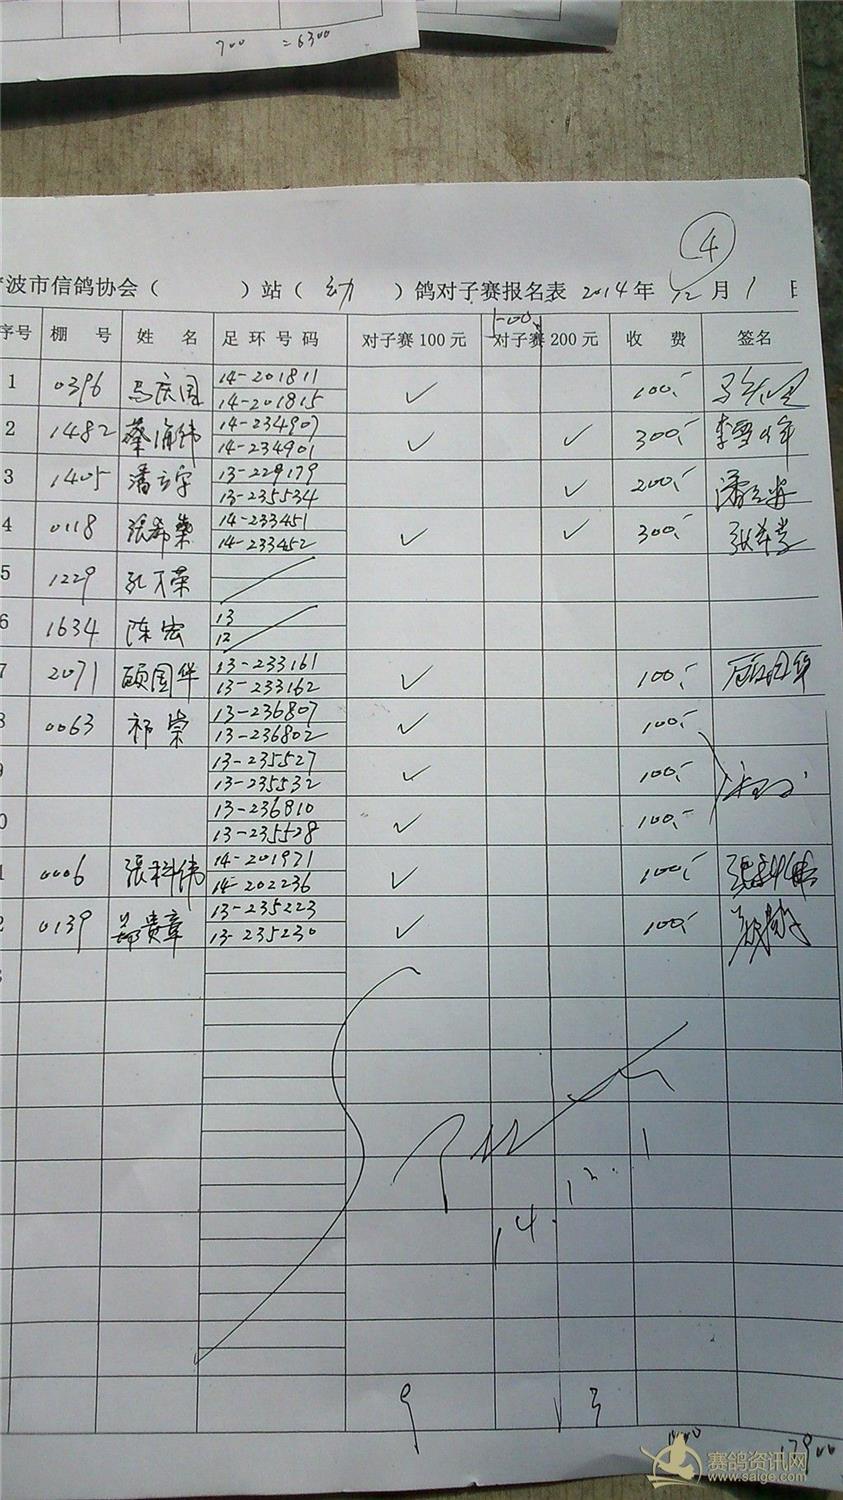 700 =6300
4
波市信鸽协会（ ）站（ 幼 ）鸽对子赛报名表 2014年 12月 1日
序号 棚 号 姓 名 足 环 号 码 对子赛 100 元 对子赛 200 元 收 费 签名
1 0396 马庆国 14-201811 ✓ 100.-
14-201815
2 1482 蔡海伟 14-234907 ✓ ✓ 300.-
14-234901
3 1405 潘立宇 13-229179 ✓ 200.-
13-235534
4 0118 張希荣 14-233451 ✓ ✓ 300.-
14-233452
5 1229 孔万荣
6 1634 陈宏 13
12
7 2071 顾国华 13-233161 ✓ 100.-
13-233162
8 0063 祁崇 13-236807 ✓ 100.-
13-236802
9 13-235527 ✓ 100.-
13-235532
0 13-236810 ✓ 100.-
13-235528
1 0006 張科伟 14-201971 ✓ 100.- 張科伟
14-202236
2 0139 郑贵章 13-235223 ✓ 100.-
13-235230
14.12.1
9 3
17900
赛鸽资讯网
www.saige.com